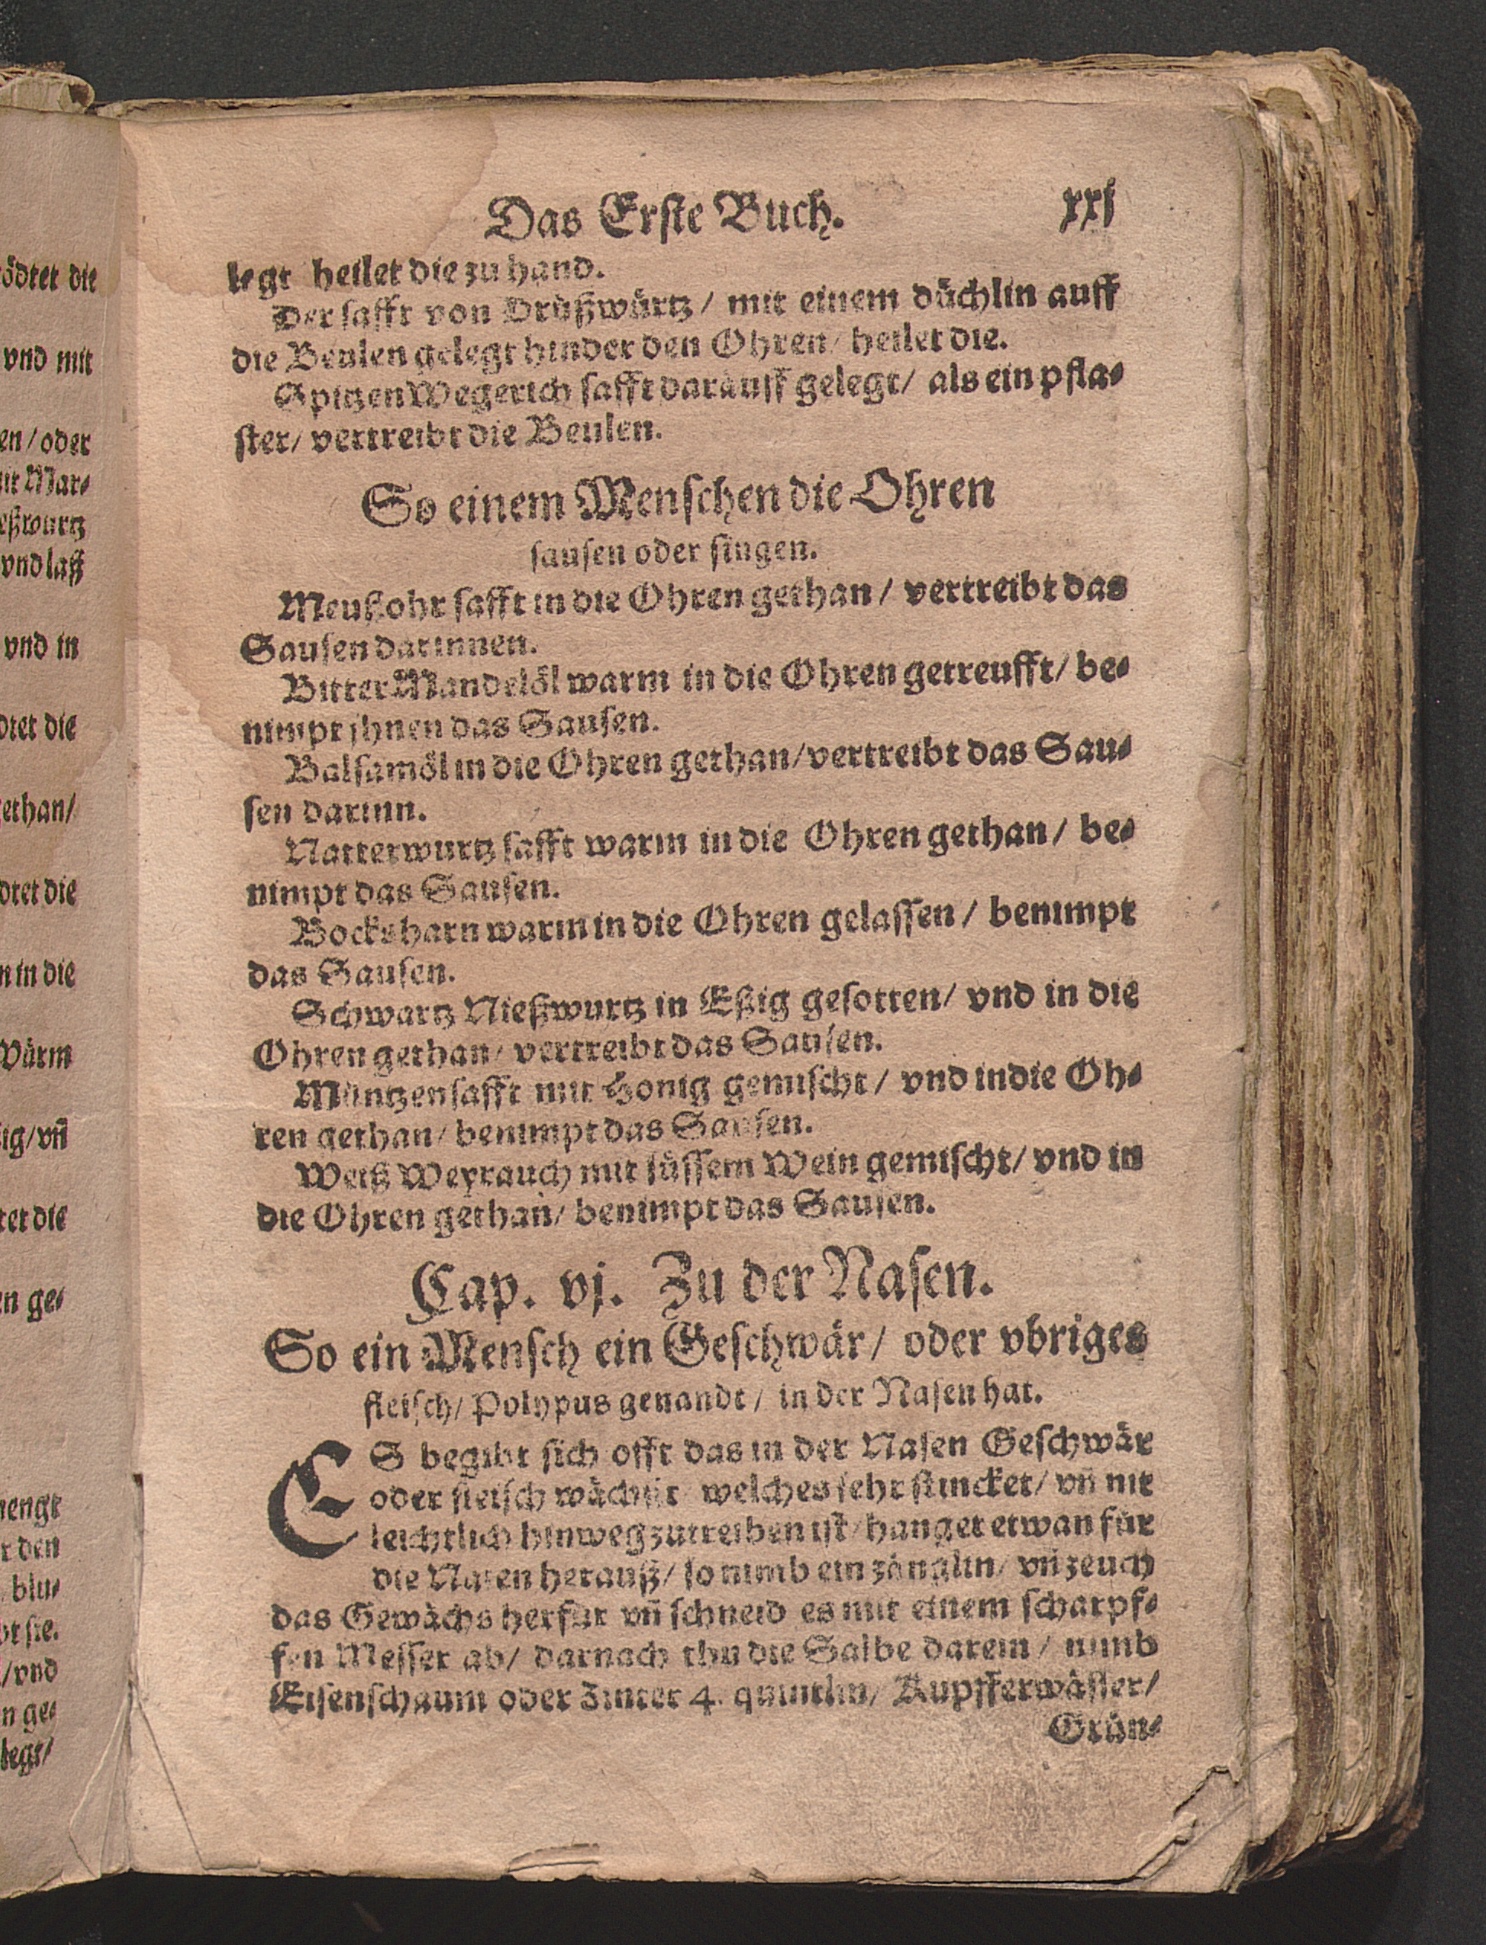 Das Erste Buch. xxj
legt heilet die zu hand.
Der safft von Drüßwürtz / mit einem düchlin auff
die Beulen gelegt hinder den Ohren / heilet die.
Spitzen Wegerich safft darauff gelegt / als ein pfla⸗
ster / vertreibt die Beulen.
So einem Menschen die Ohren
sausen oder singen.
Meußohr safft in die Ohren gethan / vertreibt das
Sausen darinnen.
Bitter Mandelöl warm in die Ohren getreufft / be⸗
nimpt jhnen das Sausen.
Balsamöl in die Ohren gethan / vertreibt das Sau⸗
sen darinn.
Natterwurtz safft warm in die Ohren gethan / be⸗
nimpt das Sausen.
Bocksharn warm in die Ohren gelassen / benimpt
das Sausen.
Schwartz Nießwurtz in Eßig gesotten / vnd in die
Ohren gethan / vertreibt das Sausen.
Müntzensafft mit Honig gemischt / vnd in die Oh⸗
ren gethan / benimpt das Sausen.
Weiß Weyrauch mit süssem Wein gemischt / vnd in
die Ohren gethan / benimpt das Sausen.
Cap. vj. Zu der Nasen.
So ein Mensch ein Geschwär / oder vbriges
fleisch / Polypus genandt / in der Nasen hat.
ES begibt sich offt das in der Nasen Geschwär
oder fleisch wächßt / welches sehr stincket / vñ nit
leichtlich hinweg zutreiben ist / hanget etwan für
die Nasen herauß / so nimb ein zänglin / vñ zeuch
das Gewächs herfür vñ schneid es mit einem scharpf⸗
fen Messer ab / darnach thu die Salbe darein / nimb
Eisenschaum oder Zinter 4. quintlin / Kupfferwasser /
Grün⸗
ödtet die
vnd mit
en / oder
it Mar⸗
eßwurtz
vnd lass
vnd in
dtet die
gethan /
dtet die
n in die
Würm
ig / vñ
tet die
en ge⸗
mengt
r den
blu⸗
bt sie.
/ vnd
n ge⸗
legt /